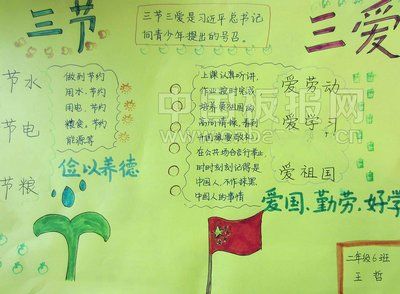 三节
三爱
三节三爱是习近平总书记
向青少年提出的号召。
节水
节电
节粮
做到节约
用水.节约
用电、节约
粮食。节约
能源等
俭以养德
上课认真听讲,
作业按时完成
培养爱祖国的
高尚情操,看到
升国旗要敬礼
在公共场合言行举止
时时刻刻记得是
中国人,不作抹黑
中国人的事情
爱劳动
爱学习
爱祖国
爱国、勤劳、好学
二年级6班
王哲